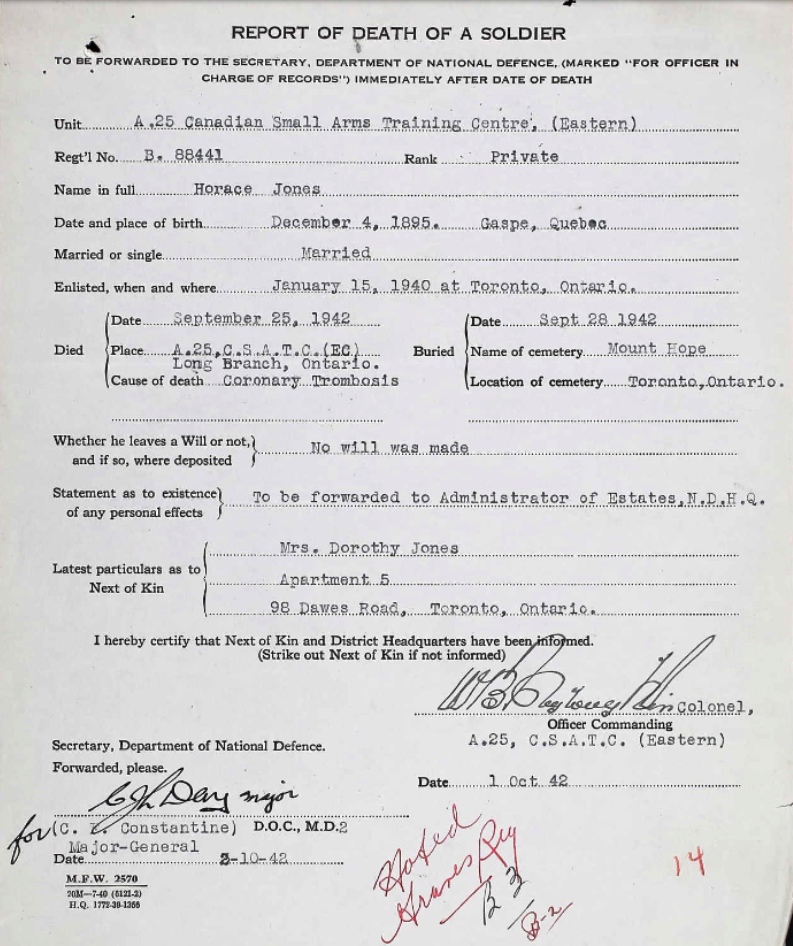 REPORT OF DEATH OF A SOLDIER
TO BE FORWARDED TO THE SECRETARY, DEPARTMENT OF NATIONAL DEFENCE, (MARKED "FOR OFFICER IN
CHARGE OF RECORDS") IMMEDIATELY AFTER DATE OF DEATH
Unit A.25 Canadian Small Arms Training Centre, (Eastern)
Regt'l No. B. 88441 Rank Private
Name in full Horace Jones
Date and place of birth December 4, 1895. Gaspe, Quebec
Married or single Married
Enlisted, when and where January 15, 1940 at Toronto, Ontario.
Died Date September 25, 1942
Place A.25,C.S.A.T.C.(EC)
Long Branch, Ontario.
Cause of death Coronary Trombosis
Buried Date Sept 28 1942
Name of cemetery Mount Hope
Location of cemetery Toronto,Ontario.
Whether he leaves a Will or not, No will was made
and if so, where deposited
Statement as to existence To be forwarded to Administrator of Estates,N.D.H.Q.
of any personal effects
Latest particulars as to Next of Kin
Mrs. Dorothy Jones
Apartment 5
98 Dawes Road, Toronto, Ontario.
I hereby certify that Next of Kin and District Headquarters have been informed.
(Strike out Next of Kin if not informed)
Colonel,
Officer Commanding
A.25, C.S.A.T.C. (Eastern)
Secretary, Department of National Defence.
Forwarded, please.
Date 1 Oct 42
major
for (C. Constantine) D.O.C., M.D.2
Major-General
Date 2-10-42
M.F.W. 2570
70M—7-40 (6122-2)
H.Q. 1772-39-1366
Noted
Graves Reg
B 3
B-2
14